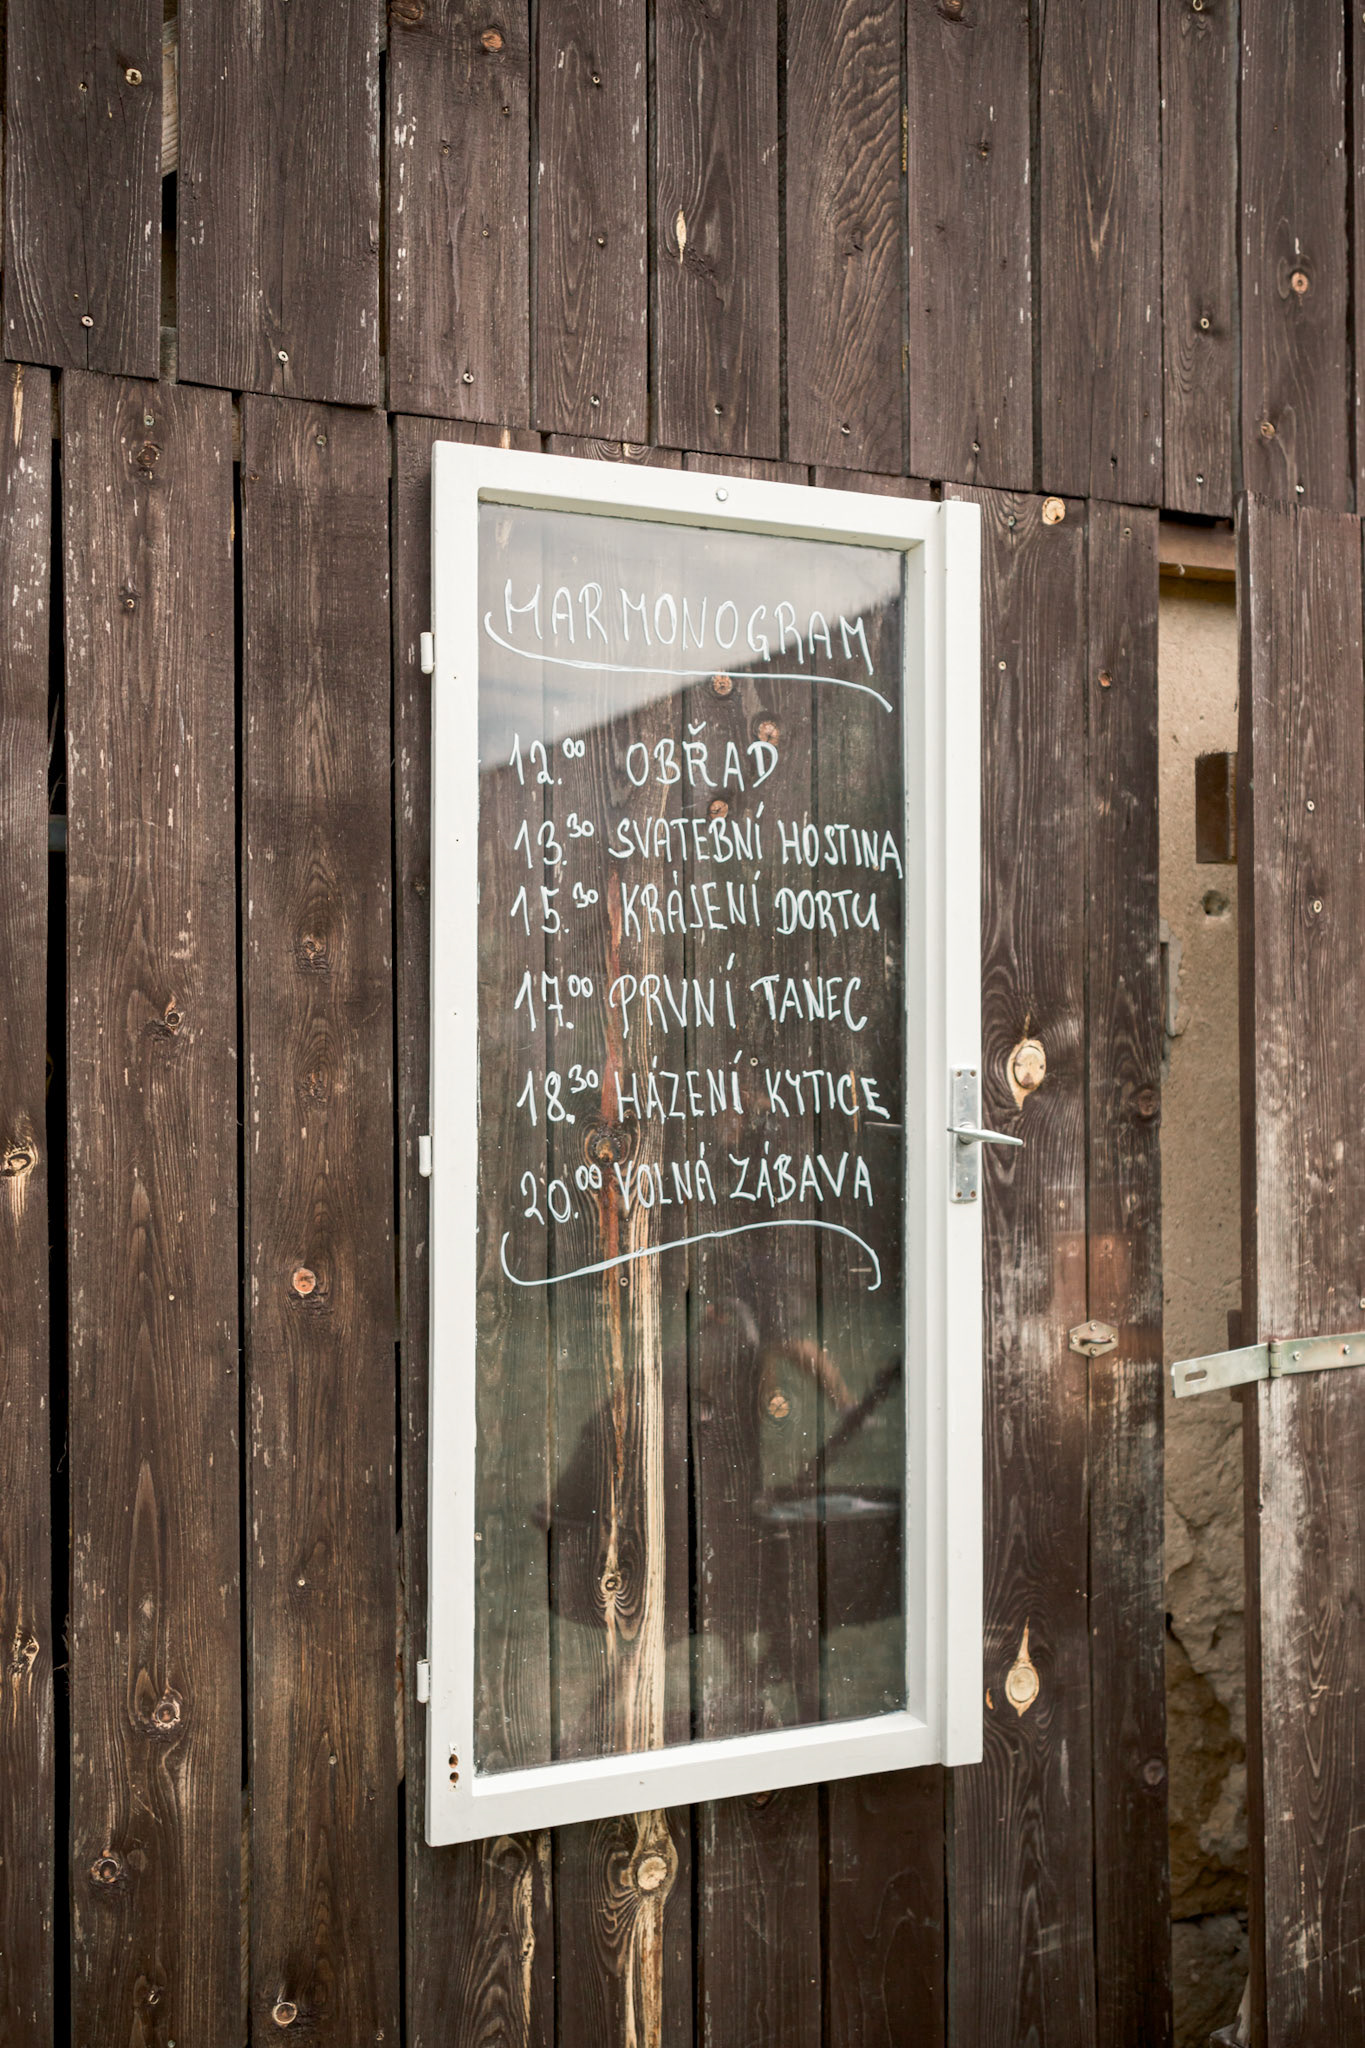 HARMONOGRAM
12.00 OBŘAD
13.30 SVATEBNÍ HOSTINA
15.30 KRÁJENÍ DORTU
17.00 PRVNÍ TANEC
18.30 HÁZENÍ KYTICE
20.00 VOLNÁ ZÁBAVA